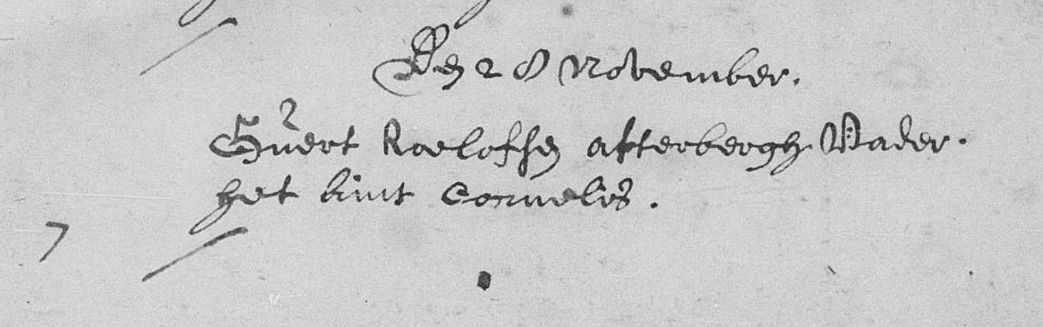 Den 28 November.
Guert Roelofsen afterbergh Vader.
het kint Cornelis.
7